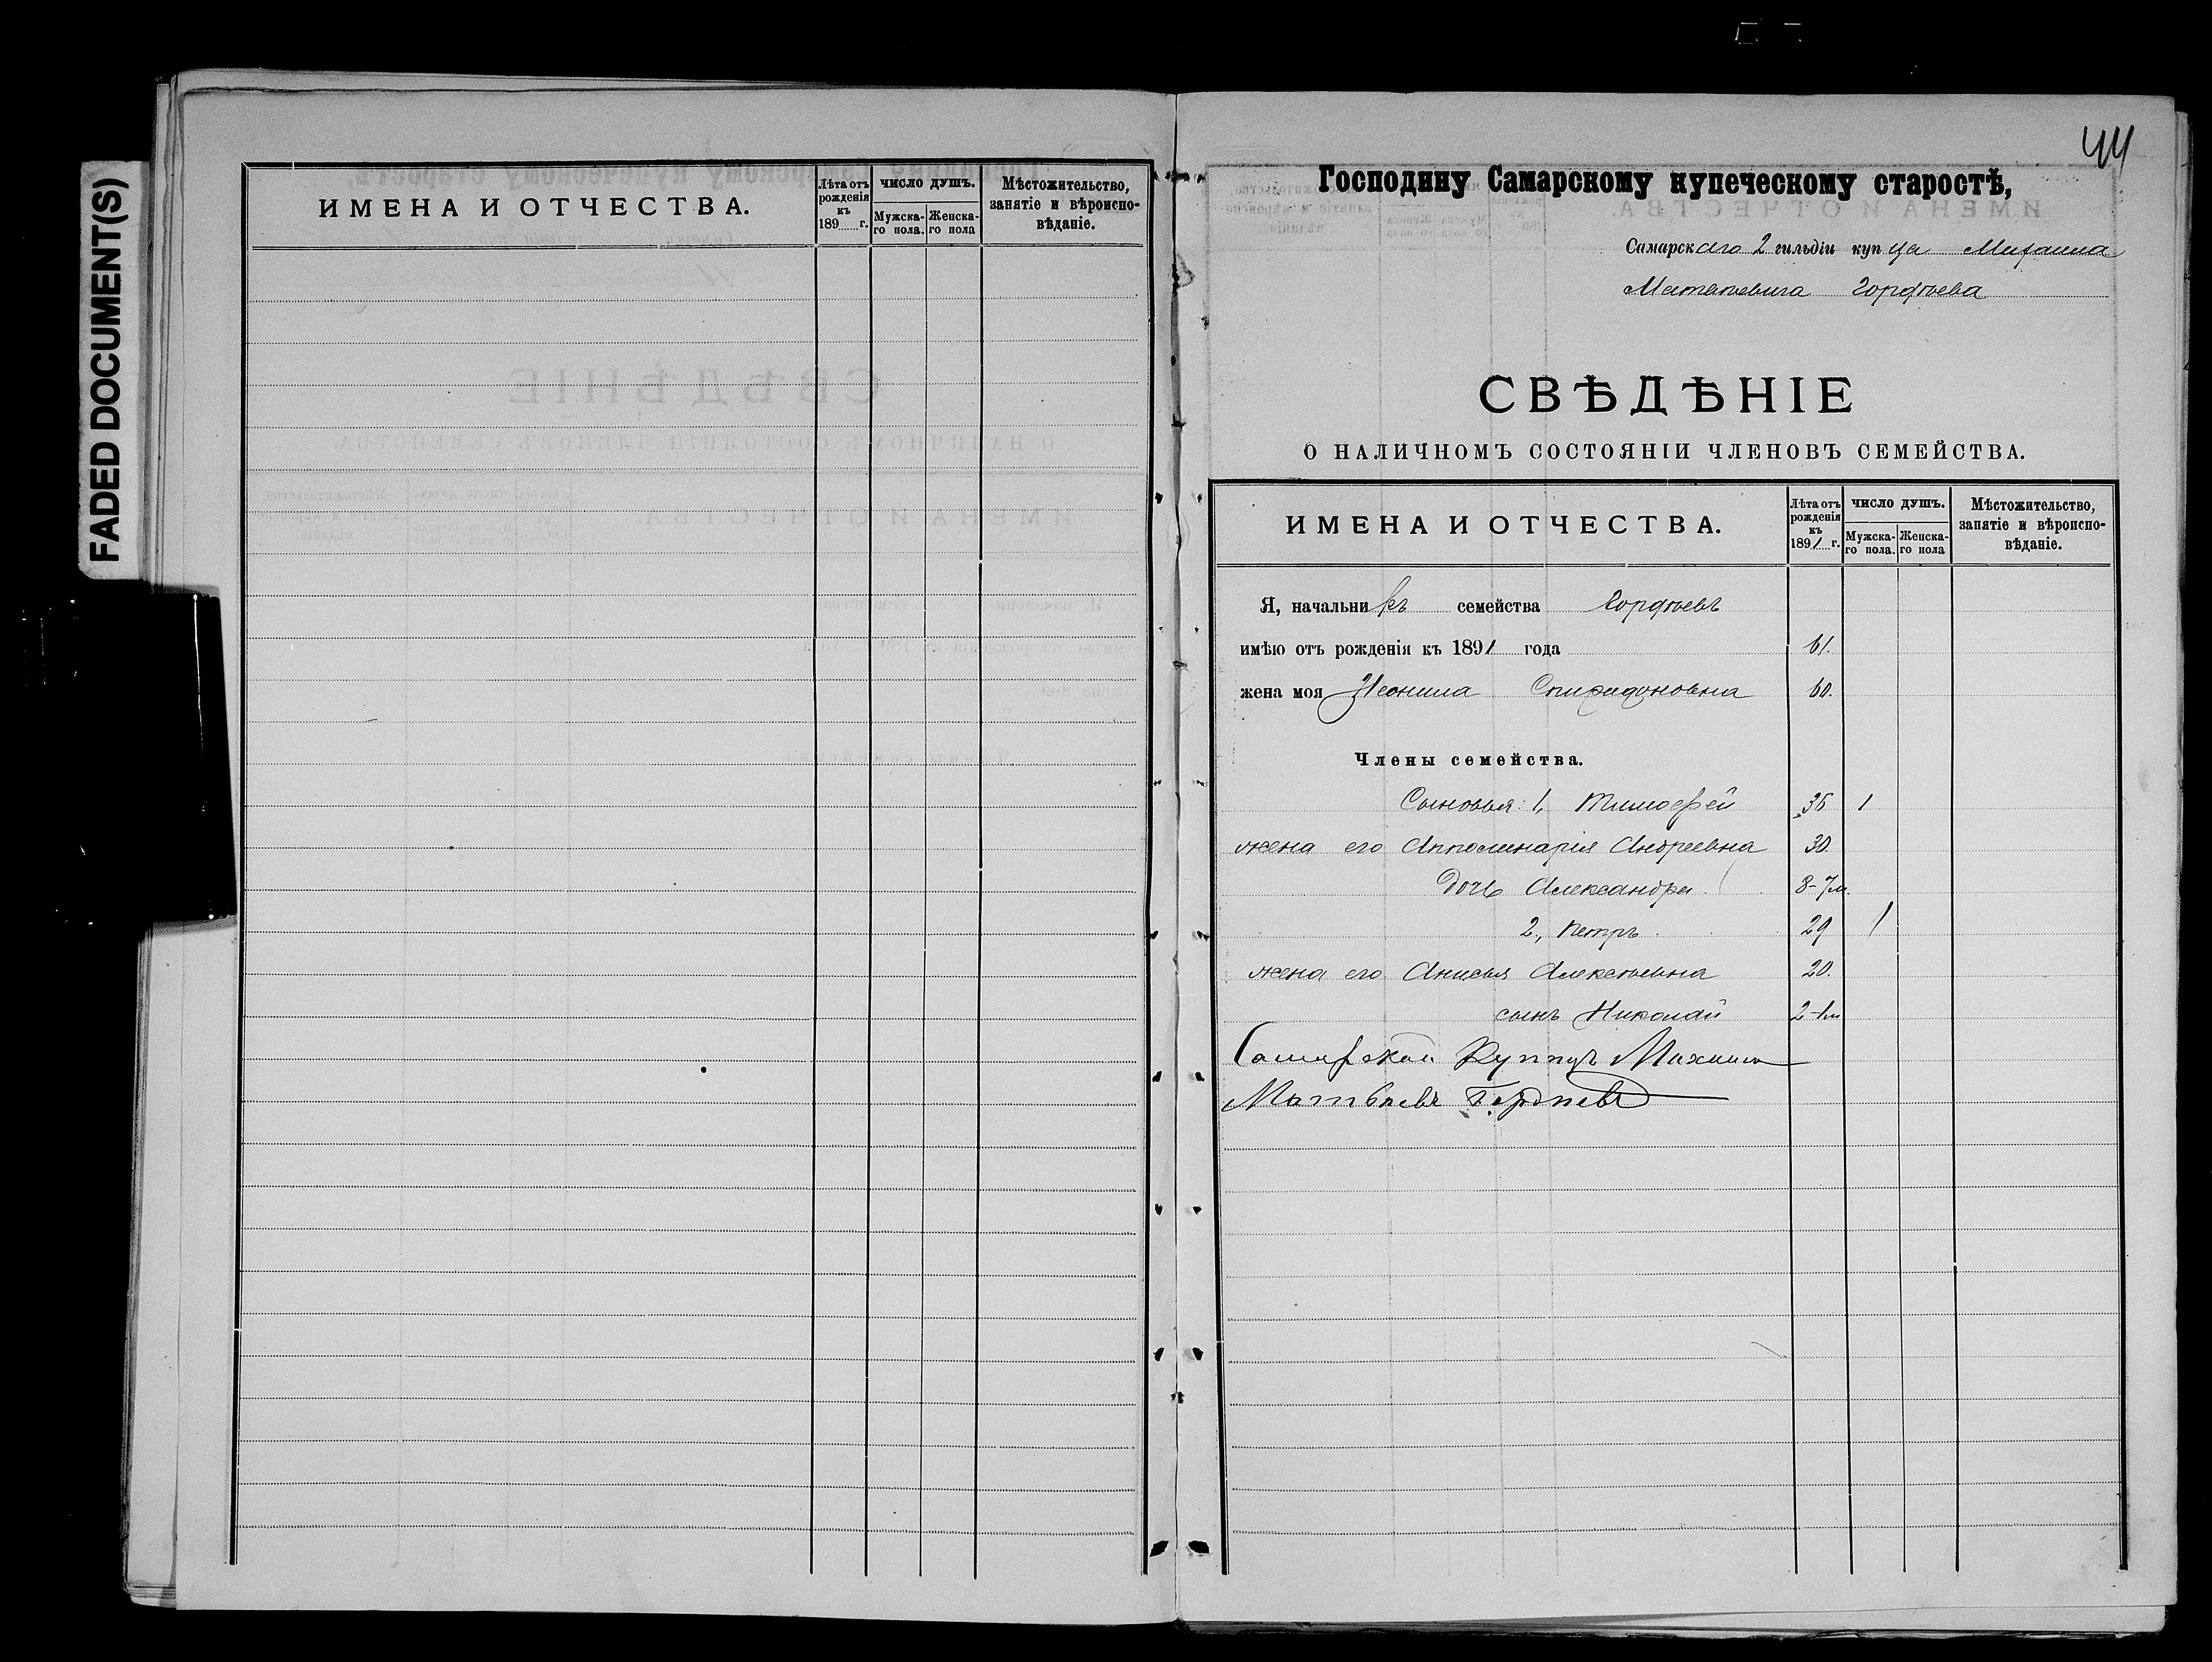 FADED DOCUMENT(S)
ИМЕНА И ОТЧЕСТВА.
Лѣта отъ рожденія къ 189 г.
ЧИСЛО ДУШЪ.
Мужска-го пола.
Женска-го пола
Мѣстожительство, занятіе и вѣроиспо-вѣданіе.
44
Господину Самарскому купеческому старостѣ,
Самарскаго 2 гильдіи купца Михаила
Матвѣевича Гордѣева
СВѢДѢНІЕ
О НАЛИЧНОМЪ СОСТОЯНІИ ЧЛЕНОВЪ СЕМЕЙСТВА.
ИМЕНА И ОТЧЕСТВА.
Лѣта отъ рожденія къ 1891 г.
ЧИСЛО ДУШЪ.
Мужска-го пола.
Женска-го пола
Мѣстожительство, занятіе и вѣроиспо-вѣданіе.
Я, начальникъ семейства Гордѣевъ
имѣю отъ рожденія къ 1891 года 61.
жена моя Неонила Спиридоновна 60.
Члены семейства.
Сыновья: 1, Тимофей 36 1
жена его Апполинарія Андреевна 30.
дочь Александра. 8-7м.
2., Петръ. 29 1
жена его Анисья Алексѣевна 20.
сынъ Николай 2-1м
Самарской Купицъ Михаила
Матвѣевъ Гордѣевъ